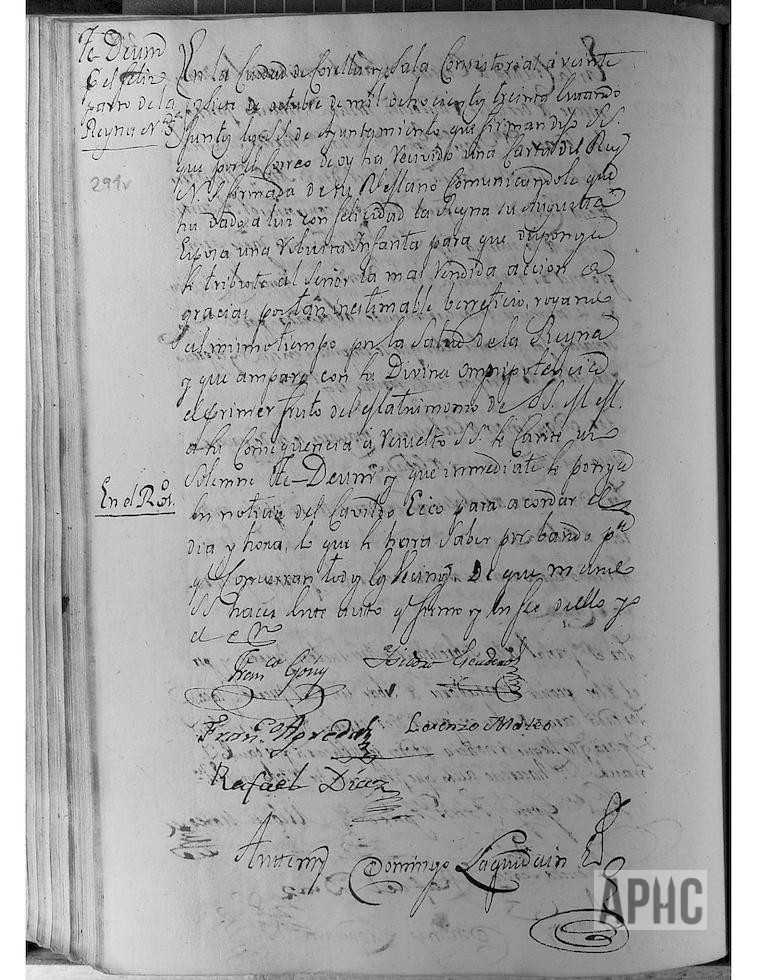 Te Deum
feliz
parto de la
Reyna N.ª S.ª
291v
En la Ciudad de Corella y Sala Consistorial a veinte
y siete de octubre de mil ochocientos treinta estando
juntos los SS. de Ayuntamiento que firman dijo SS.
que por el Correo de oy ha recivido una Carta del Rey
N. S. firmada de su R.l mano Comunicandole que
ha dado a luz con felicidad la Reyna su Augusta
Esposa una robusta Infanta para que disponga
se tribute al Señor la mas rendida accion de
gracias por tan inestimable beneficio, rogando
al mismo tiempo por la Salud de la Reyna
y que ampare con su Divina Omnipotencia
el primer fruto del Matrimonio de SS. MM.
a su Consequencia á resuelto SS. se Cante un
Solemne Te-Deum y que inmediate se ponga
En el R.
en noticia del Cavildo Ecco para acordar el
dia y hora, lo que se hara Saber por bando p.ª
q.e Concurran todos los Vecinos. De que mande
SS. hacer este auto q.e firmo y en fee de ello yo
el
Fran.co Goñi Escudero
Fran.co Agreda Lorenzo Mateo
Rafael Diaz
Antemi Domingo Laquidain
APHC